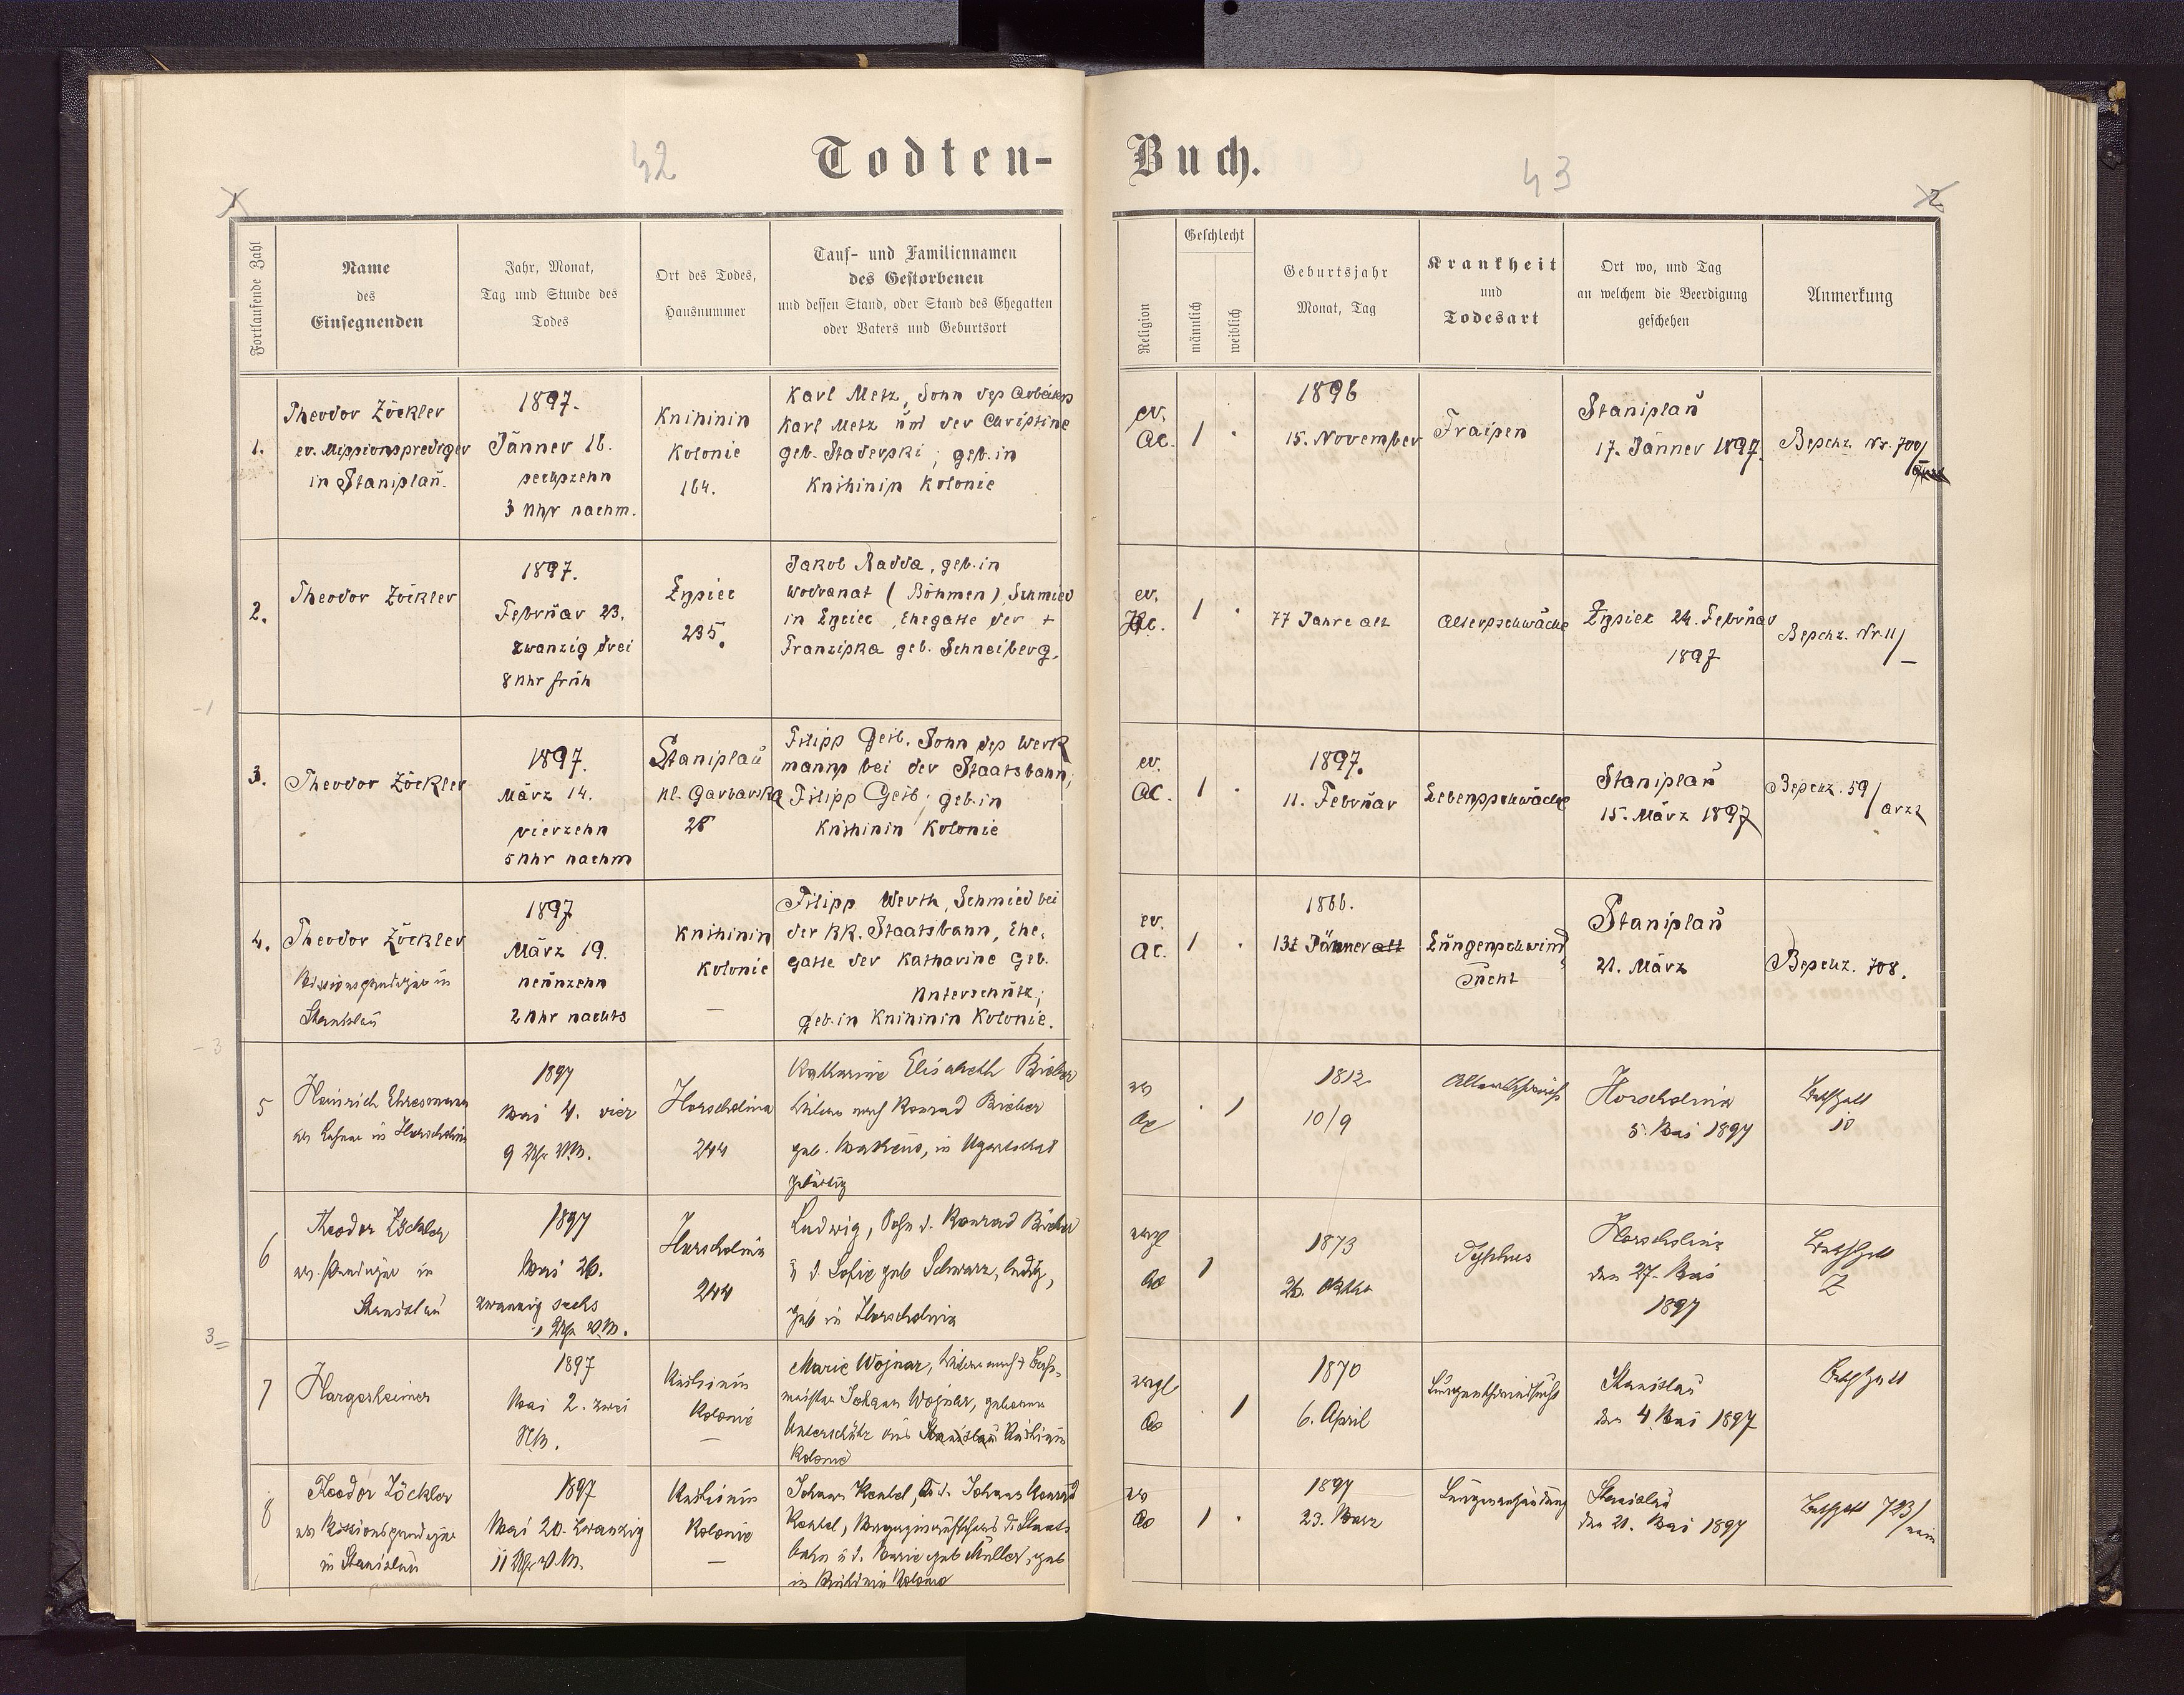 42
Todten-
Buch.
43
1
2
Fortlaufende Zahl
Name
des
Einsegnenden
Jahr, Monat,
Tag und Stunde des
Todes
Ort des Todes,
Hausnummer
Tauf- und Familiennamen
des Gestorbenen
und dessen Stand, oder Stand des Ehegatten
oder Vaters und Geburtsort
Religion
Geschlecht
männlich
weiblich
Geburtsjahr
Monat, Tag
Krankheit
und
Todesart
Ort wo, und Tag
an welchem die Beerdigung
geschehen
Anmerkung
1.
Theodor Zöckler
ev. Missionsprediger
in Stanislau.
1897.
Jänner 16.
sechszehn
3 Uhr nachm.
Knihinin
Kolonie
164.
Karl Metz, Sohn des Arbeiters
Karl Metz und der Christine
geb. Staderski; geb. in
Knihinin Kolonie
ev.
AC.
1
1896
15. November
Fraisen
Stanislau
17. Jänner 1897.
Beschz. Nr. 700/
2.
Theodor Zöckler
1897.
Februar 23.
zwanzig drei
8 Uhr früh
Łysiec
235.
Jakob Radda, geb. in
Wodranat (Böhmen), Schmied
in Łysiec, Ehegatte der +
Franziska geb. Schneiberg.
ev.
HC.
1
77 Jahre alt
Altersschwäche
Łysiec 24. Februar
1897
Beschz. Nr. 11/-
3.
Theodor Zöckler
1897.
März 14.
vierzehn
5 Uhr nachm
Stanislau
ul. Garbarska
28
Filipp Geib, Sohn des Werk
manns bei der Staatsbahn,
Filipp Geib; geb. in
Knihinin Kolonie
ev.
AC.
1
1897.
11. Februar
Lebensschwäche
Stanislau
15. März 1897
Beschz. 59/
Arzt
4.
Theodor Zöckler
Missionsprediger in
Stanislau
1897
März 19.
neunzehn
2 Uhr nachts
Knihinin
Kolonie
—
Filipp Werth, Schmied bei
der kk. Staatsbahn, Ehe-
gatte der Katharine geb.
Unterschütz;
geb. in Knihinin Kolonie.
ev.
AC.
1
1866.
13t Jänner alt
Lungenschwind
sucht
Stanislau
21. März
Beschz. 708.
5
Heinrich Ehresmann
ev. Lehrer in Horocholina
1897
Mai 4. vier
9 Uhr VM.
Horocholina
244
Katharine Elisabeth Bieber
Witwe nach Konrad Bieber
geb. in Ugartsthal
gebürtig
ev
AC
1
1812
10/9
Altersschwäche
Horocholina
5. Mai 1897
Beschzett
10
6
Theodor Zöckler
ev. Prediger in
Stanislau
1897
Mai 26.
zwanzig sechs
Uhr VM.
Horocholina
244
Ludwig, Sohn d. Konrad Bieber
u d. Sofie geb Schwarz, ledig,
geb in Horocholina
evgl
AC
1
1873
26. Oktober
Typhus
Horocholina
den 27. Mai
1897
Beschzett
7
Hargesheimer
1897
Mai 2. zwei
NM.
Knihinin
Kolonie
—
Marie Wojnar, Witwe nach +
meister Johann Wojnar, geborene
Unterschütz aus Stanislau Knihinin
Kolonie
evgl
AC
1
1870
6. April
Lungenschwindsucht
Stanislau
den 4 Mai 1897
Beschzett
8
Theodor Zöckler
ev Missionsprediger
in Stanislau
1897
Mai 20. zwanzig
11 Uhr VM.
Knihinin
Kolonie
—
Johann Keutel, S. d. Johann Konrad
Keutel, d. Staats
bahn u d. Marie geb Müller, geb
in Knihinin Kolonie
ev
AC
1
1897
23. März
Lungenentzündung
Stanislau
den 21. Mai 1897
Beschzett 723/